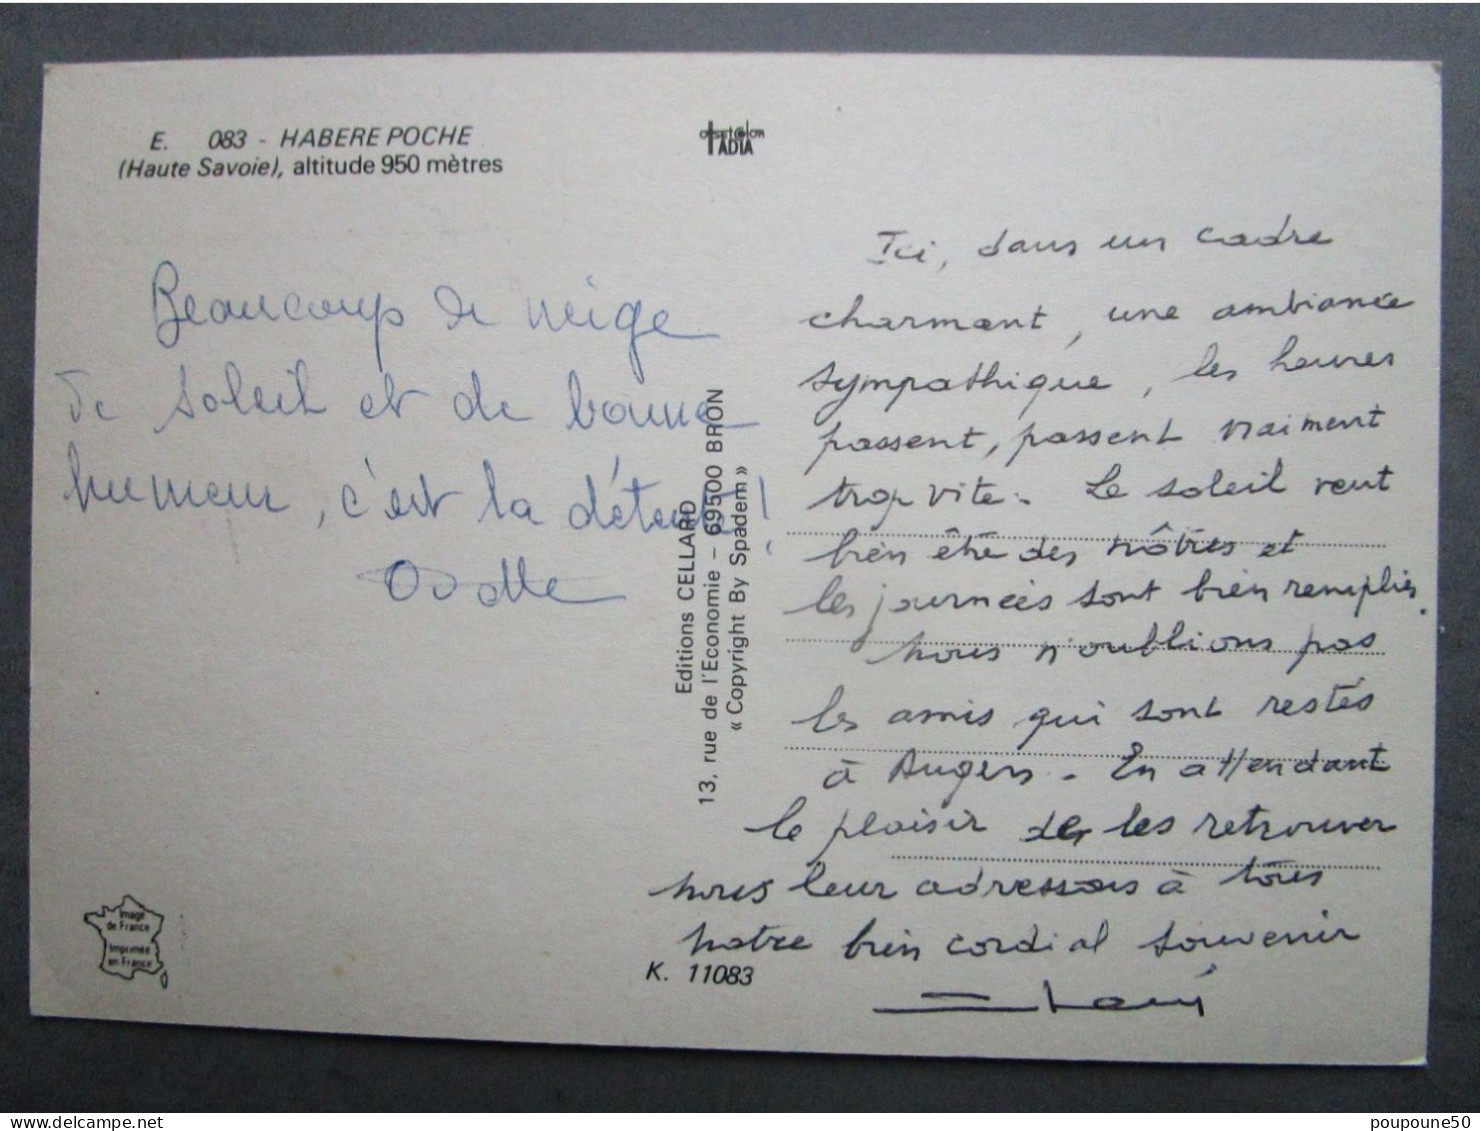 E. 083 - HABERE POCHE
(Haute Savoie), altitude 950 mètres
TADIA
Beaucoup de neige
de soleil et de bonne
humeur, c'est la détente !
Odette
Editions CELLARD
13, rue de l'Economie – 69500 BRON
« Copyright By Spadem »
Ici, dans un cadre
charmant, une ambiance
sympathique, les heures
passent, passent vraiment
trop vite. Le soleil veut
bien être des nôtres et
les journées sont bien remplies.
Nous n'oublions pas
les amis qui sont restés
à Angers. En attendant
le plaisir de les retrouver
nous leur adressons à tous
notre bien cordial souvenir
Image
de France
Imprimée
en France
K. 11083
delcampe.net
poupoune50